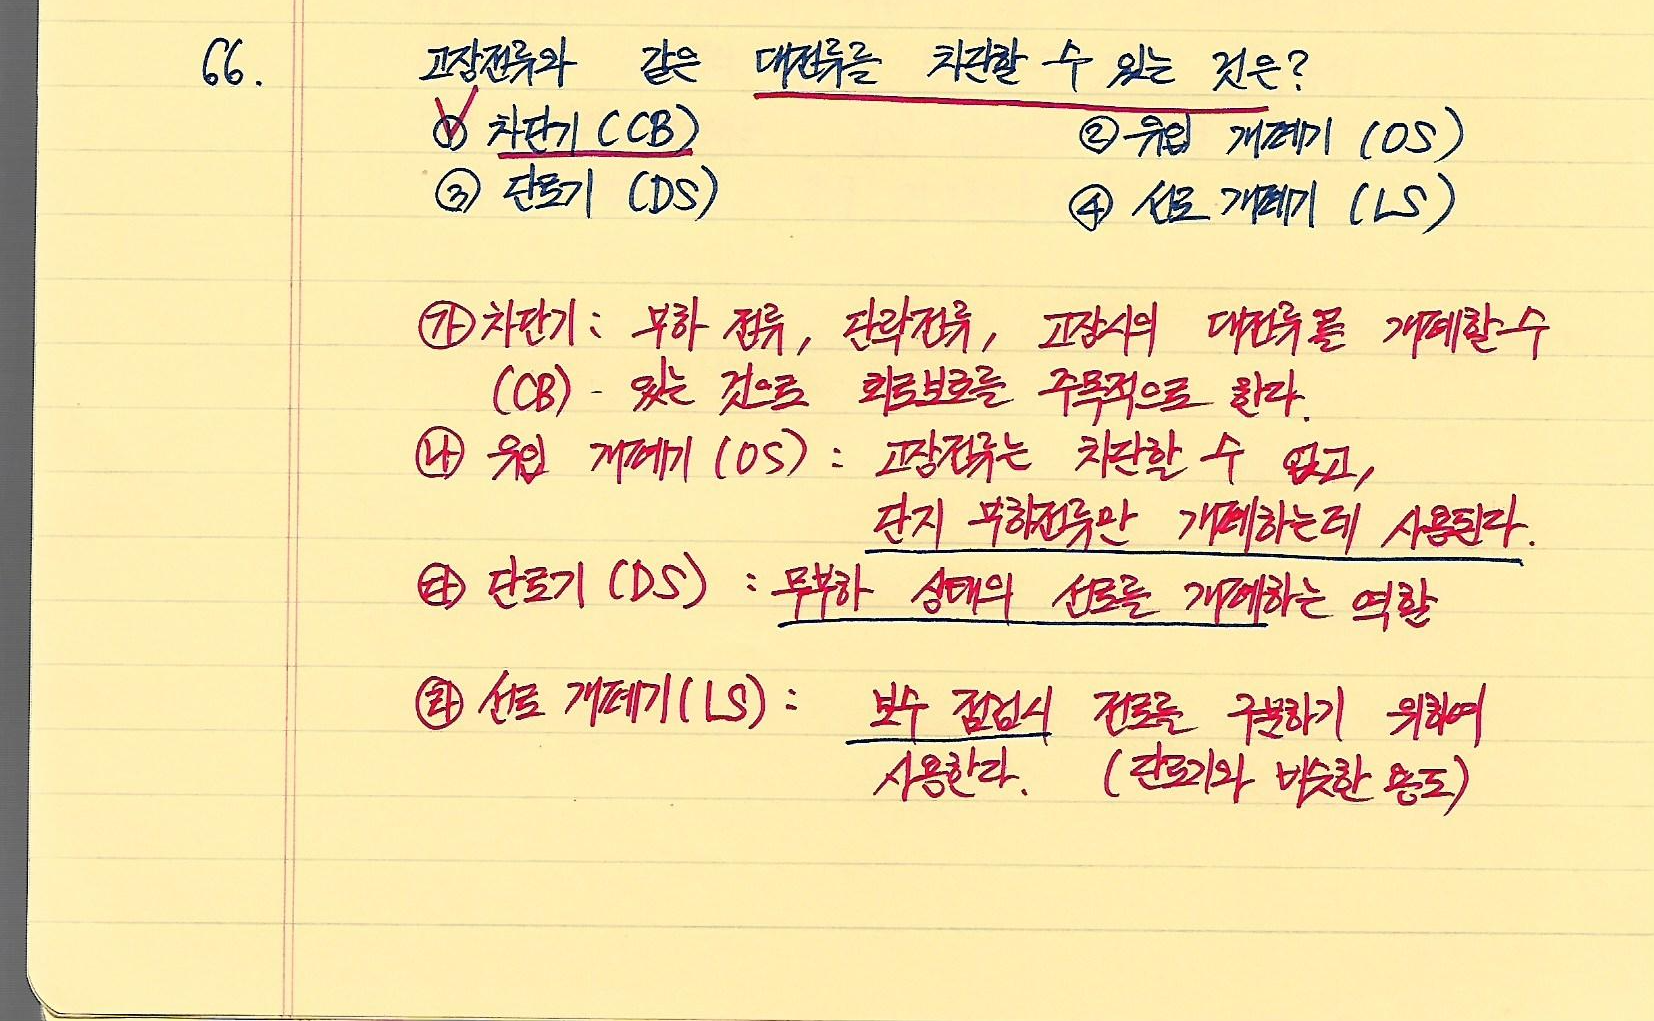 66. 고장전류와 같은 대전류를 차단할 수 있는 것은?
① 차단기 (CB) ② 유입 개폐기 (OS)
③ 단로기 (DS) ④ 선로 개폐기 (LS)
㉮ 차단기 : 부하 전류, 단락전류, 고장시의 대전류를 개폐할 수
(CB) - 있는 것으로 회로보호를 주목적으로 한다.
㉯ 유입 개폐기 (OS) : 고장전류는 차단할 수 없고,
단지 부하전류만 개폐하는데 사용된다.
㉰ 단로기 (DS) : 무부하 상태의 선로를 개폐하는 역할
㉱ 선로 개폐기 (LS) : 보수 점검시 전로를 구분하기 위하여
사용한다. (단로기와 비슷한 용도)